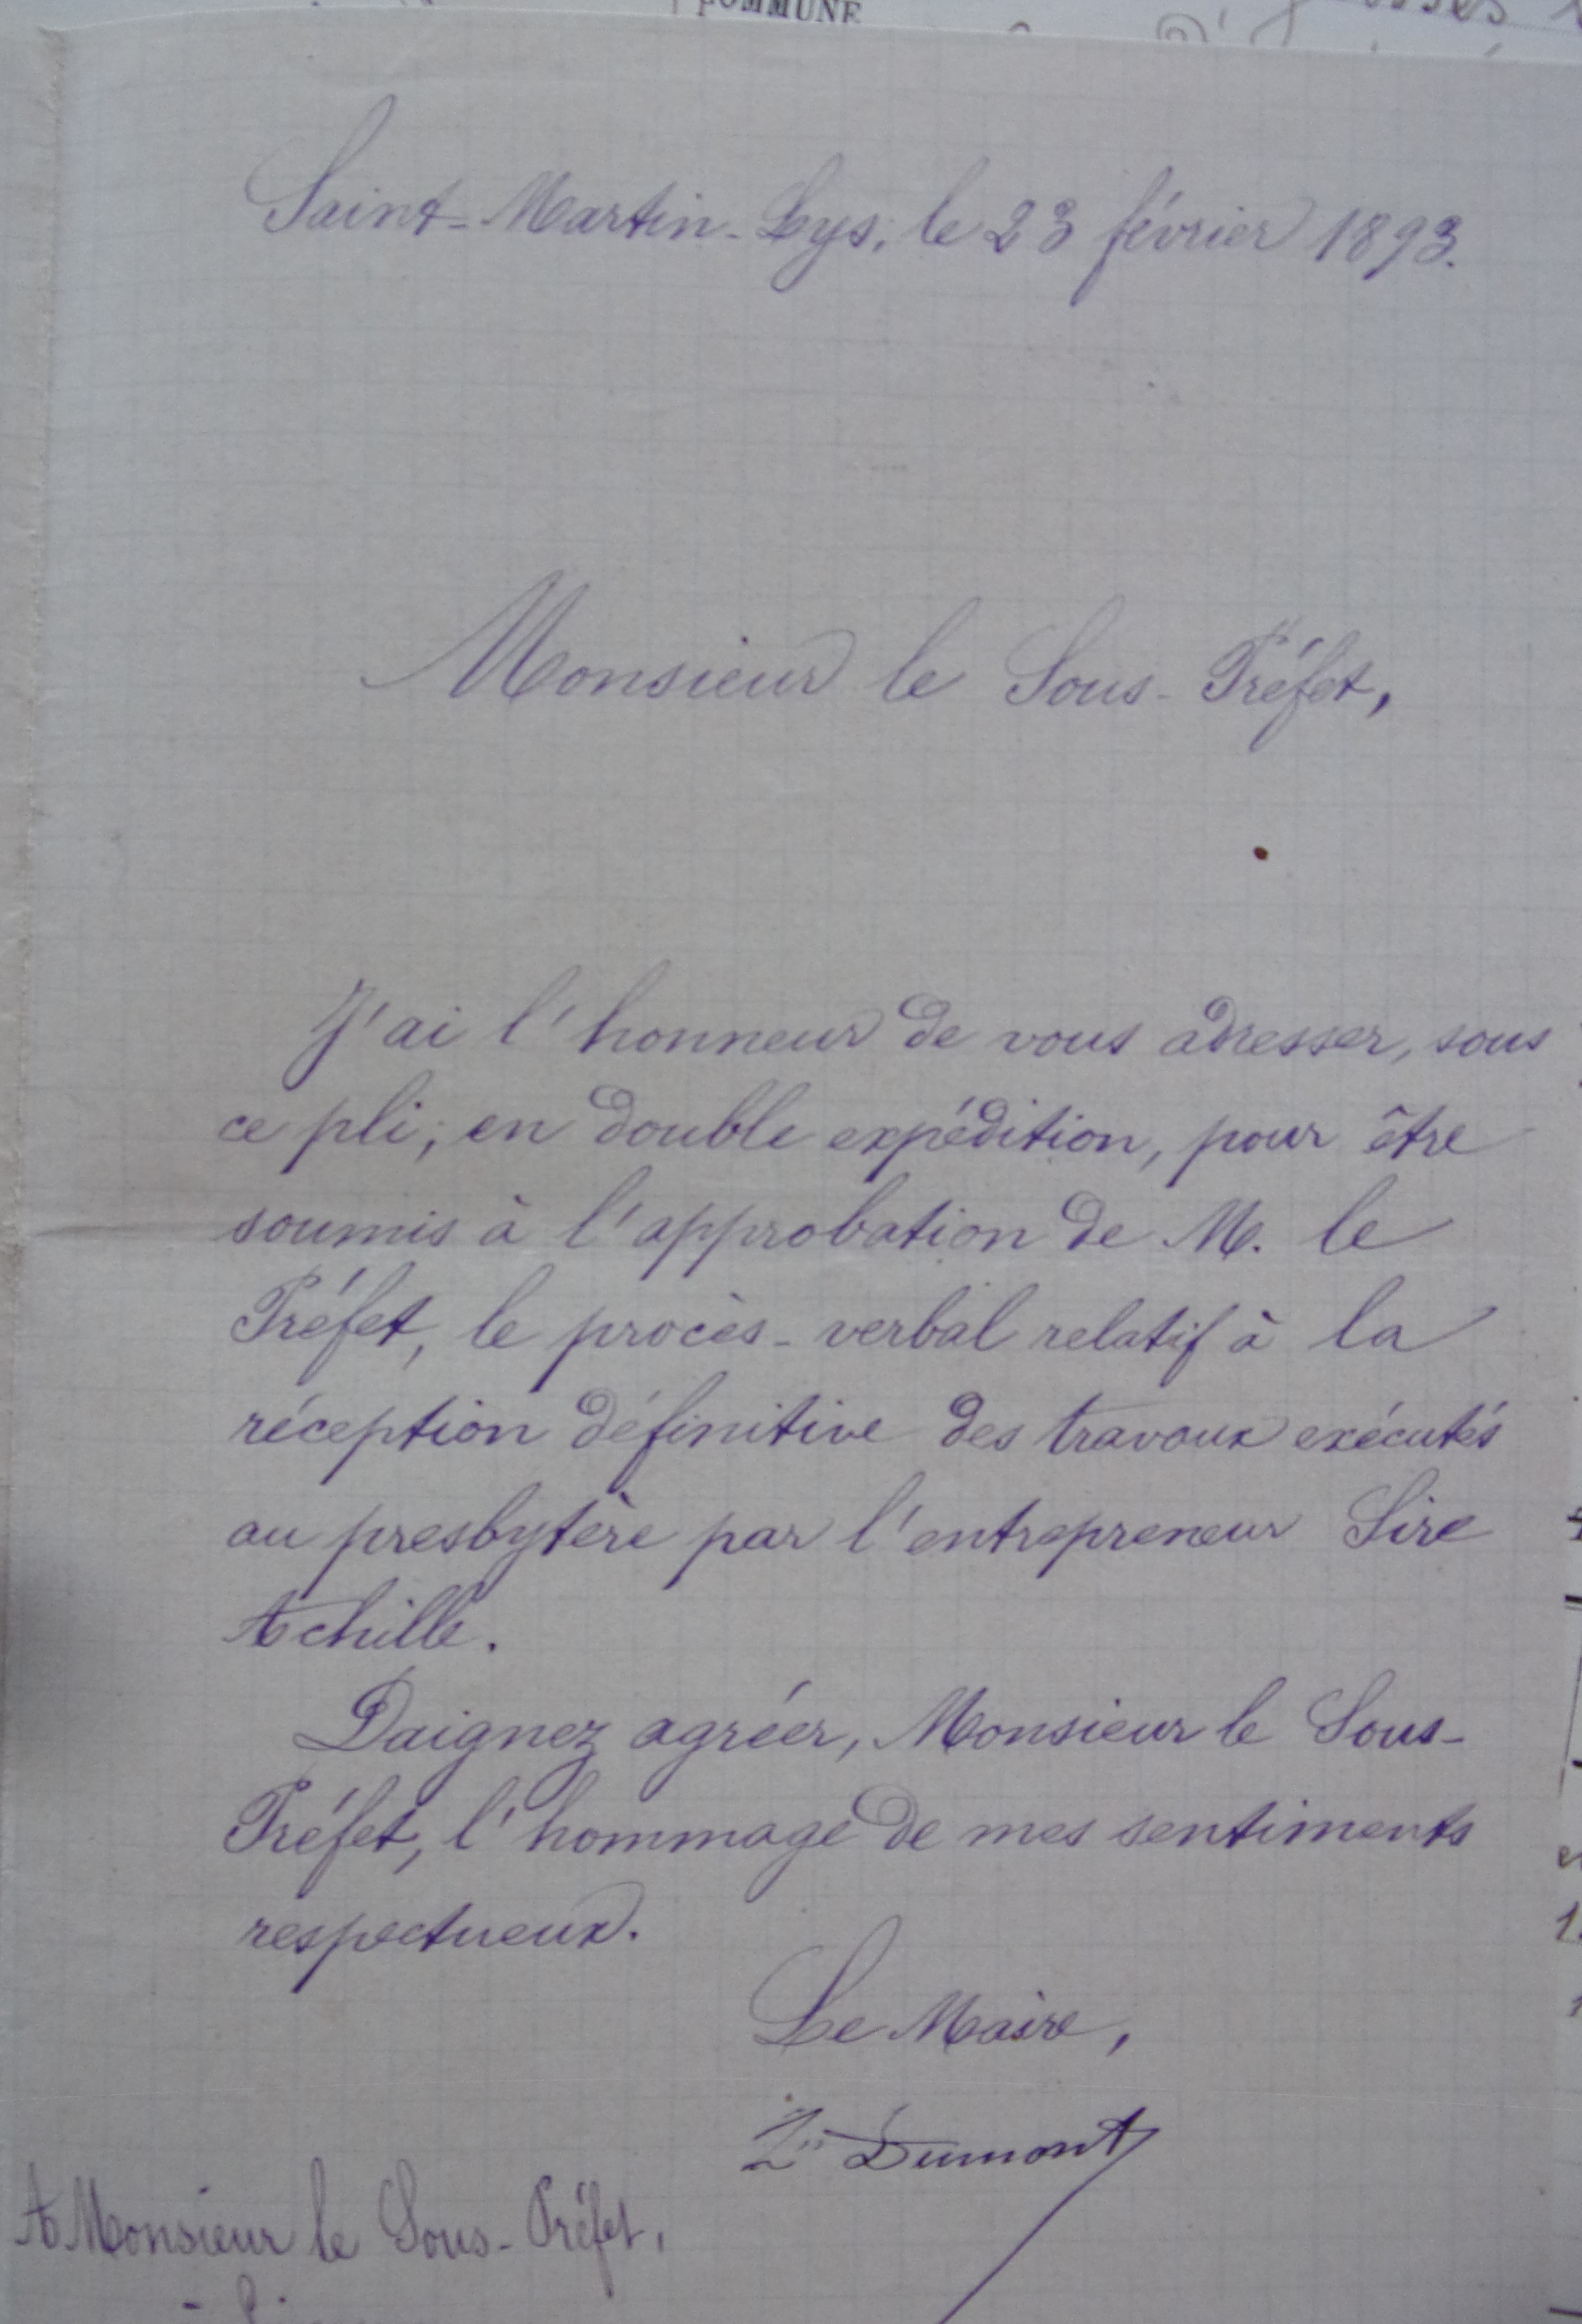 COMMUNE
Saint-Martin-Lys, le 23 février 1893.
Monsieur le Sous-Préfet,
J'ai l'honneur de vous adresser, sous
ce pli, en double expédition, pour être
soumis à l'approbation de M. le
Préfet, le procès-verbal relatif à la
réception définitive des travaux exécutés
au presbytère par l'entrepreneur Sire
Achille.
Daignez agréer, Monsieur le Sous-
Préfet, l'hommage de mes sentiments
respectueux.
Le Maire,
Dumont
A Monsieur le Sous-Préfet,